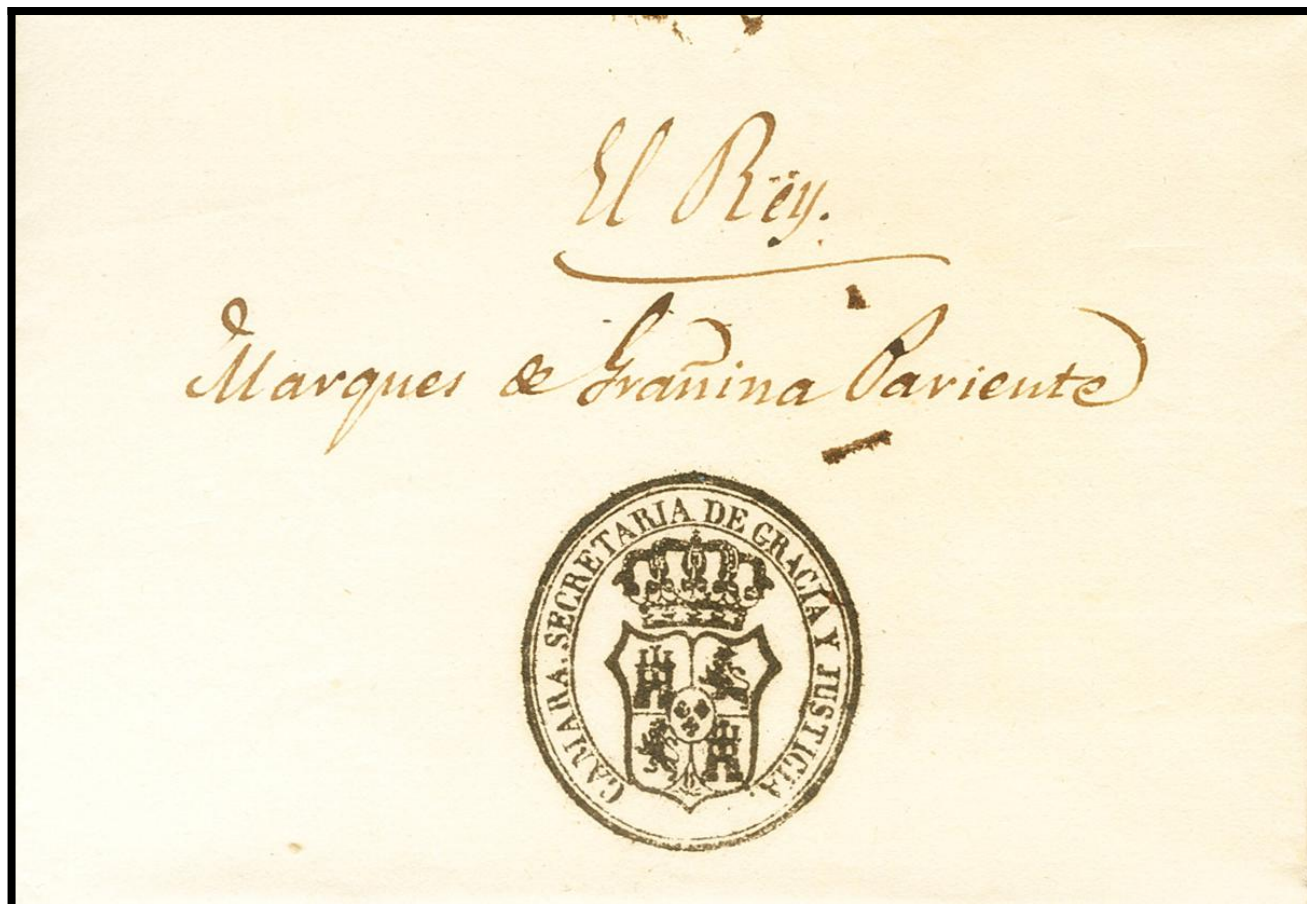 El Rëy.
Marques de Grañina Pariente
CAMARA. SECRETARIA DE GRACIA Y JUSTICIA.